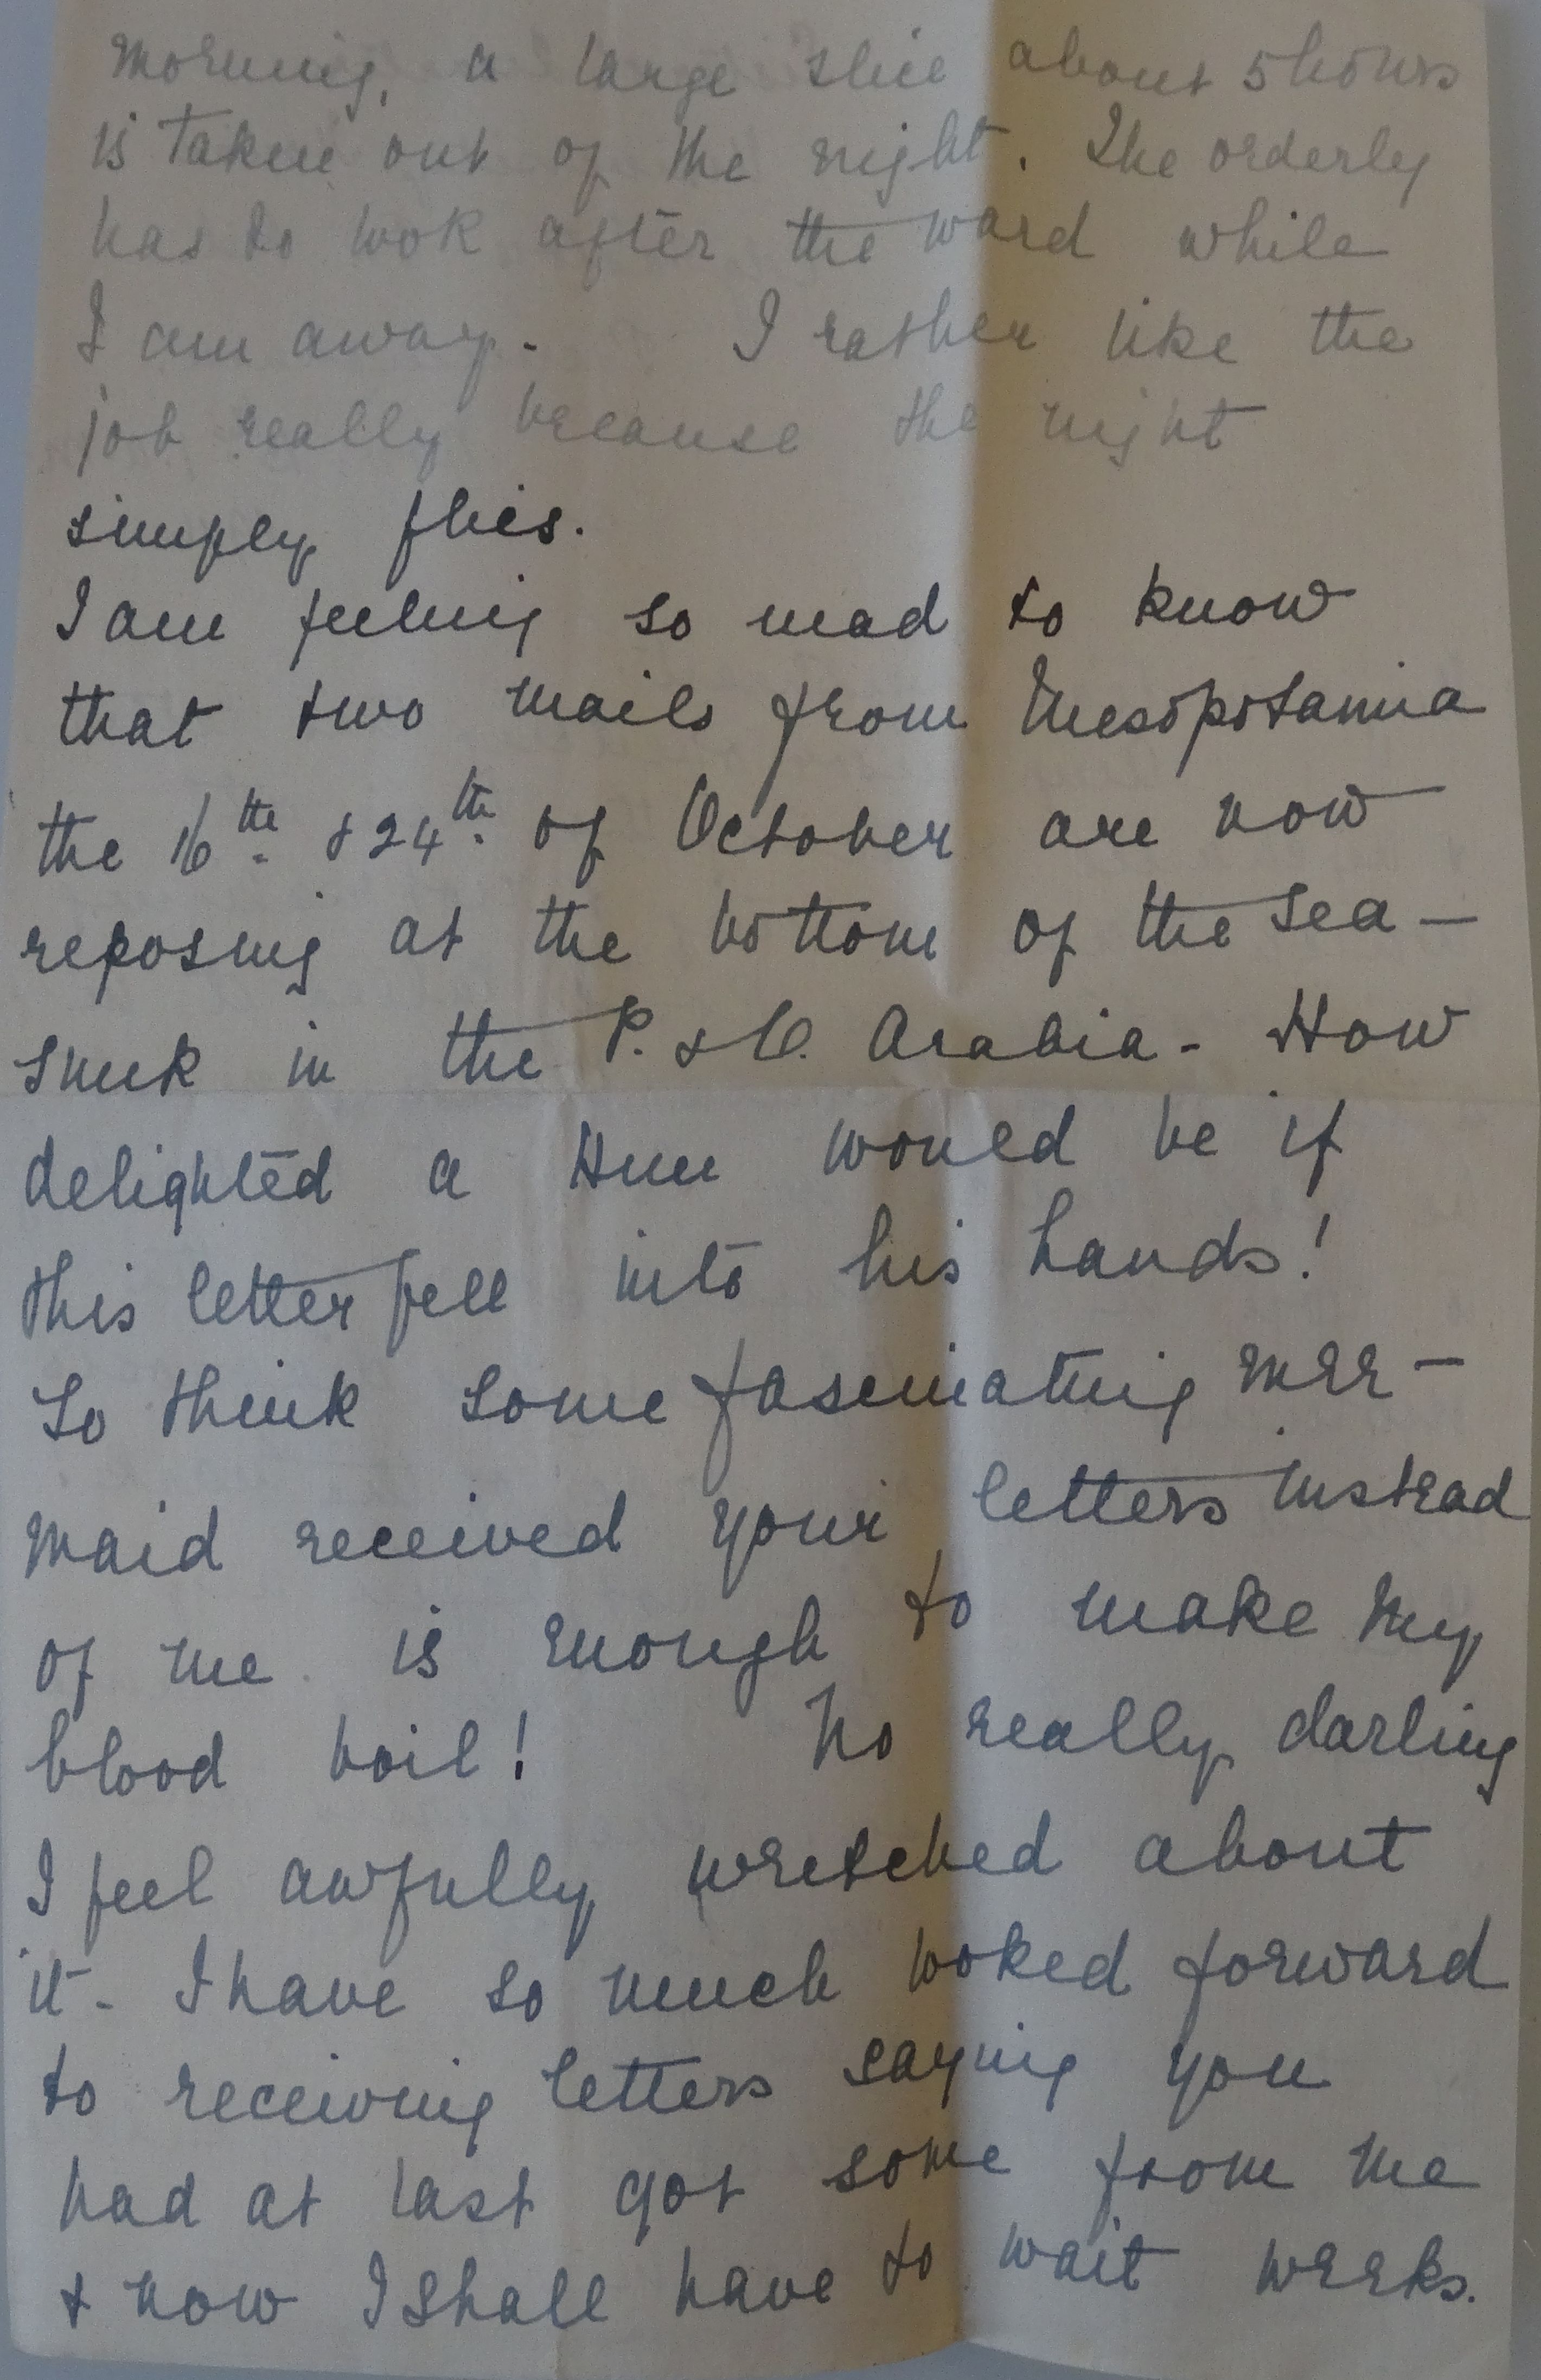 morning, a large slice about 5 hours
is taken out of the night. The orderly
has to look after the ward while
I am away. I rather like the
job really because the night
simply flies.
I am feeling so mad to know
that two mails from Mesopotamia
the 16th & 24th of October are now
reposing at the bottom of the sea —
sunk in the P. & O. Arabia - How
delighted a Hun would be if
this letter fell into his hands!
To think some fascinating mer-
maid received your letters instead
of me is enough to make my
blood boil! No really darling
I feel awfully wretched about
it - I have so much looked forward
to receiving letters saying you
had at last got some from me
& now I shall have to wait weeks.